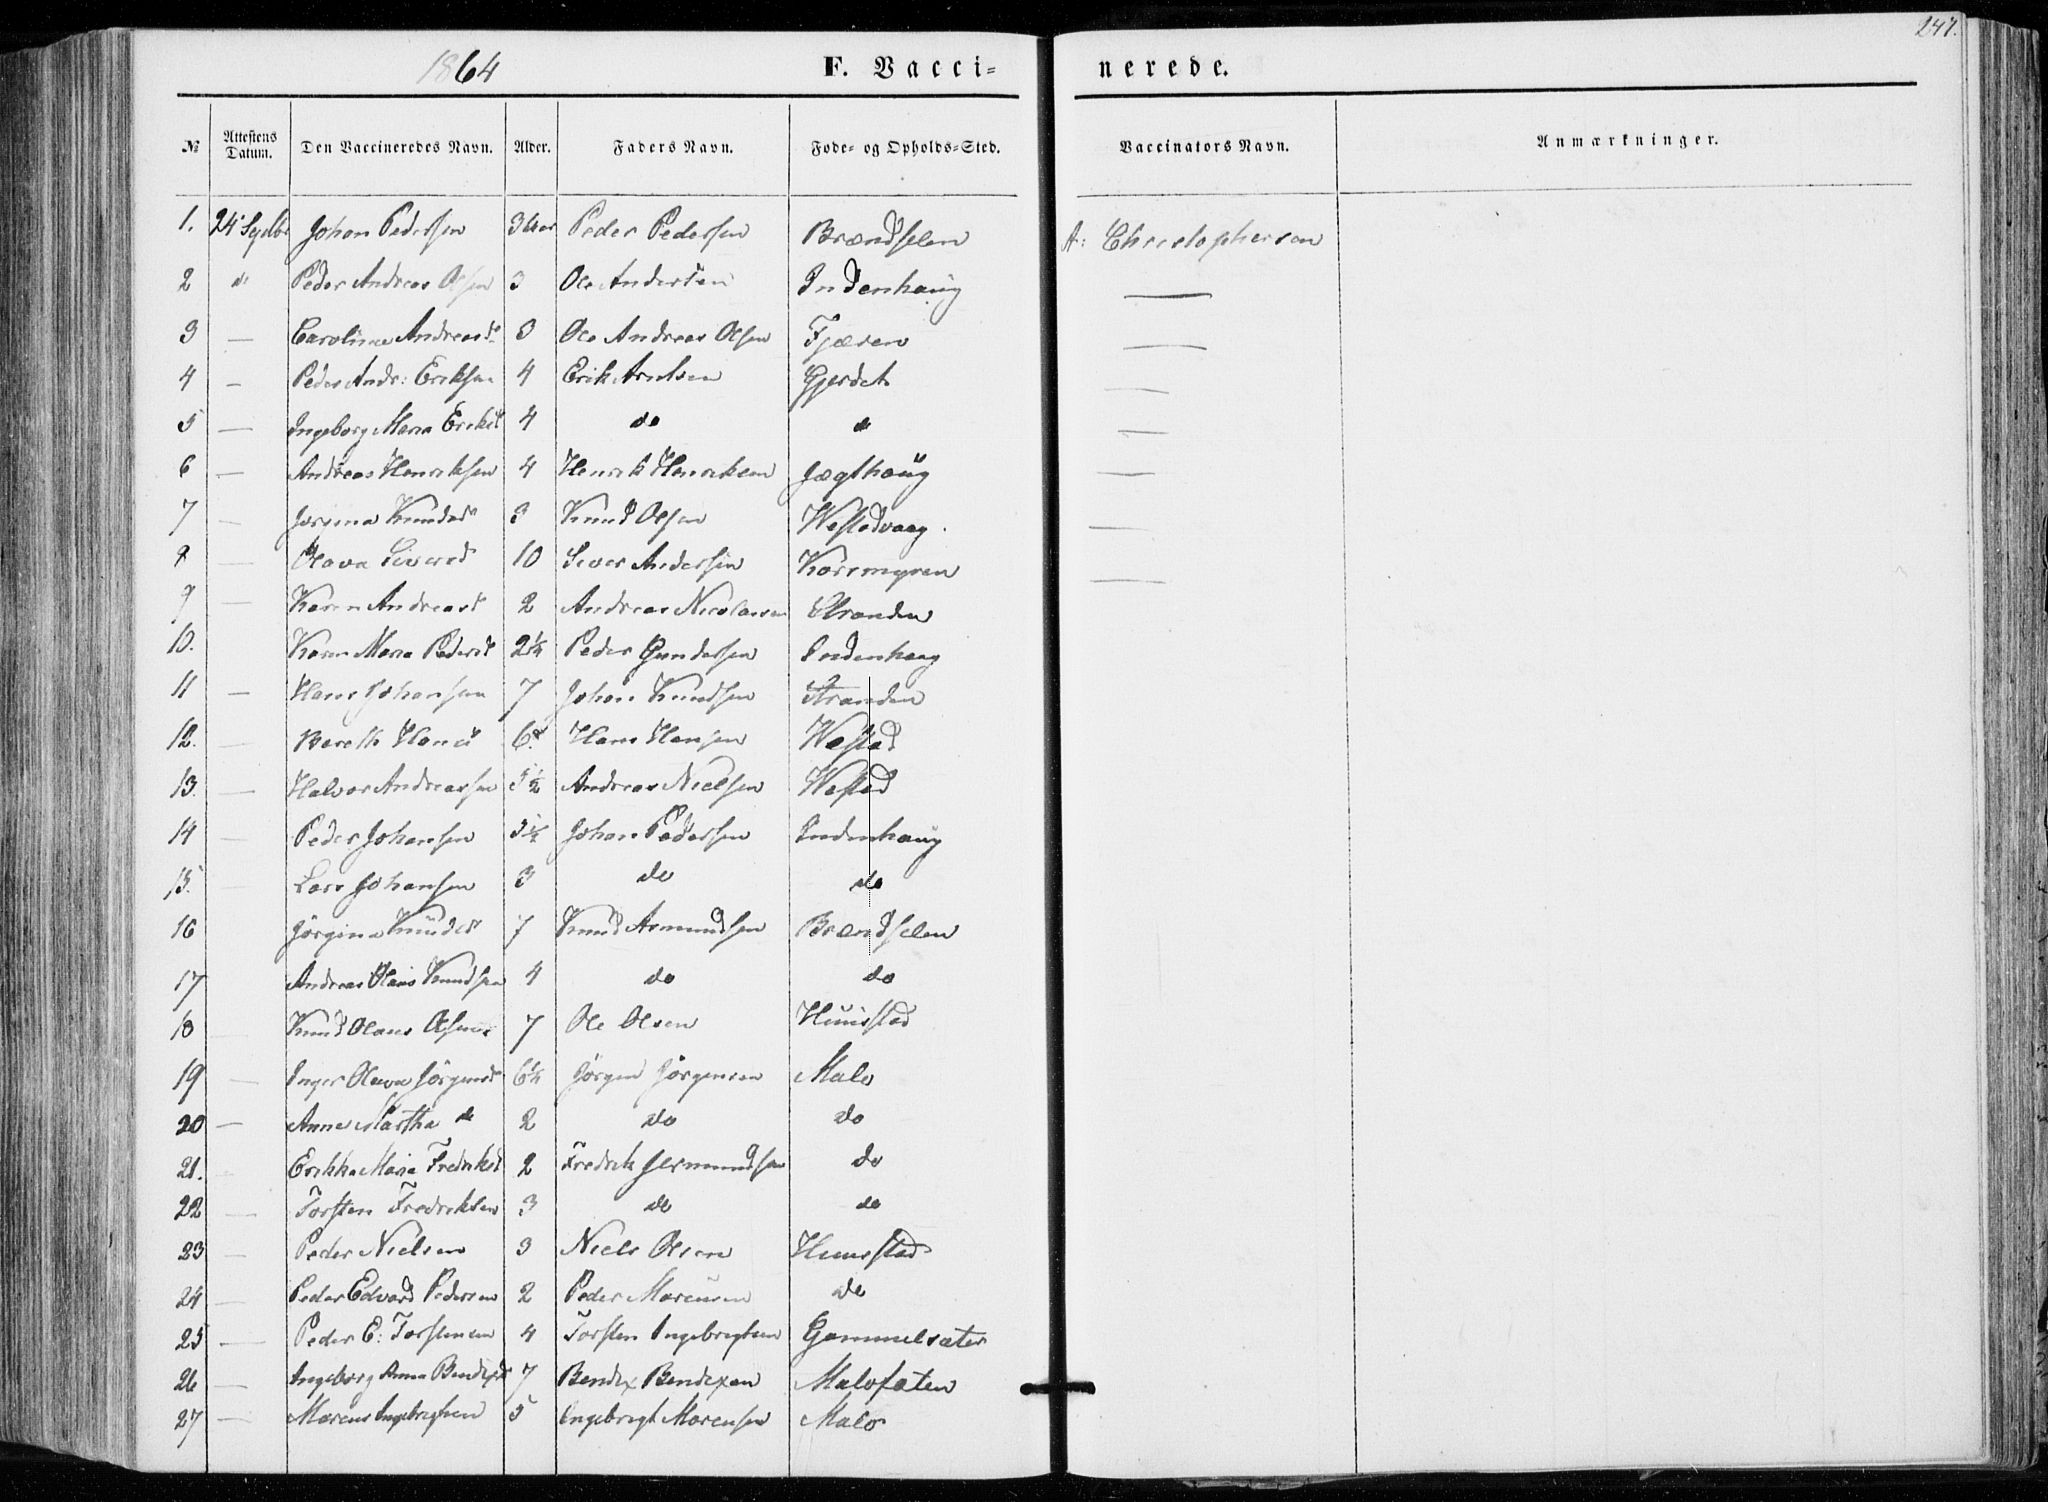 247.
1864 F. Vacci= nerede.
№ Attestens Datum. Den Vaccineredes Navn. Alder. Faders Navn. Føde- og Opholds-Sted. Vaccinators Navn. Anmærkninger.
1. 24 Johan Pedersen 3 Peder Pedersen Brændselen A: Christophersen
2 do Peder Andreas Olsen 3 Ole Andersen Indenhaug —
3 — Caroline Andreasd. 3 Ole Andreas Olsen Fjæren —
4 — Peder Andr: Eriksen 4 Erik Arntsen Gjerdet —
5 — Ingeborg Maria Eriksd 4 do do —
6 — Andreas Henriksen 4 Henrik Henriksen Jægthaug —
7 — Knudsd 3 Knud Olsen Westadvaag. —
8 Olava Siversd 10 Siver Andersen Korsmyren —
9 — Karen Andreasd 2 Andreas Nicolaisen Stranden
10. — Karen Maria Pedersd 2¼ Peder Gundersen Indenhaug
11 — Hans Johansen 7 Johan Knudsen Stranden
12. — Bereth Hansd 6 Hans Hansen Westad
13. — Halvor Andreassen 5½ Andreas Nielsen Westad
14 — Peder Johansen 5½ Johan Pedersen Indenhaug
15. — Lars Johansen 3 do do
16 — Jørgine Knudsd 7 Knud Asmundsen Brændselen
17 Andreas Olaus Knudsen 4 do do
18 — Knud Olaus Olsen 7 Ole Olsen Huusstad
19 — Inger Olava Jørgensd 6½ Jørgen Jørgensen Malo
20 — Anne Martha do 2 do do
21. — Erikka Maria Fredriksd 2 Fredrik Germundsen do
22 — Torsten Fredriksen 3 do do
23 — Peder Nielsen 3 Niels Olsen Huusstad
24 — Peder Edvard Pedersen 2 Peder Marcusen do
25 — Peder E: Torstensen 4 Torsten Ingebrigtsen Gammelsæter
26 — Ingeborg Anna Bendixd 7 Bendix Bendixen Malofeten
27 — Marcus Ingebrigtsen 5 Ingebrigt Marcusen Malo